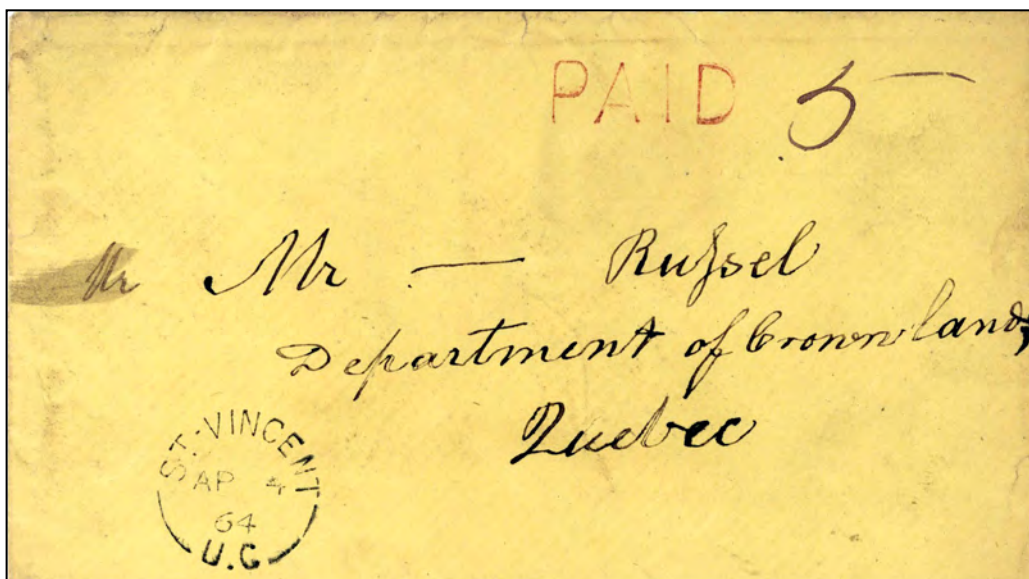 PAID 5
Mr Mr — Russel
Department of Crown lands,
Quebec
ST. VINCENT
AP 4
64
U.C.